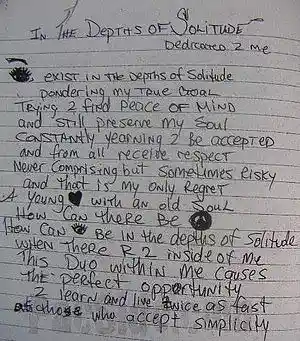 IN THE DEPTHS OF SOLITUDE
DEDICATED 2 ME
EXIST IN THE DEPTHS OF SOLITUDE
pondering my TRUE GOAL
TRYING 2 find PEACE OF MIND
and still preserve my Soul
CONSTANTLY yearning 2 be accepted
and from all receive respect
Never Comprising but sometimes risky
and that is my only Regret
A young ♥ with an old soul
How can there be
How can BE in the depths of solitude
when there R 2 inside of me
This Duo within me causes
The perfect opportunity
2 learn and live twice as fast
as those who accept simplicity